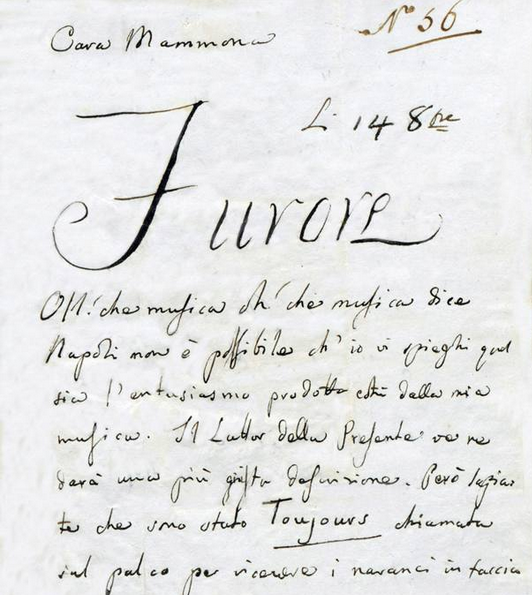 Cara Mammona
N° 56
Li 14 8bre
Furore
Oh! che musica oh! che musica dice
Napoli non è possibile ch' io vi spieghi qual
sia l'entusiasmo prodotto costì dalla mia
musica. Il Lator della Presente ve ne
darà una più giusta descrizione. Però sappia
te che sono stato Toujours chiamata
sul palco per ricevere i naranci in faccia